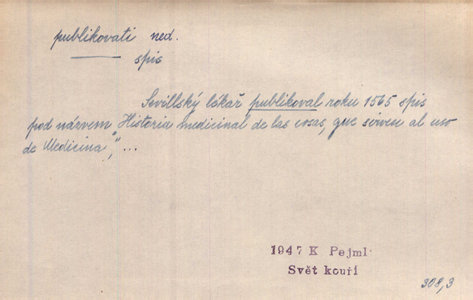 publikovati ned.
spis
Sevillský lékař publikoval roku 1565 spis
pod názvem „Historia medicinal de las cosas, que sirven al uso
de Medicina", ...
1947 K Pejml
Svět kouří
308,3